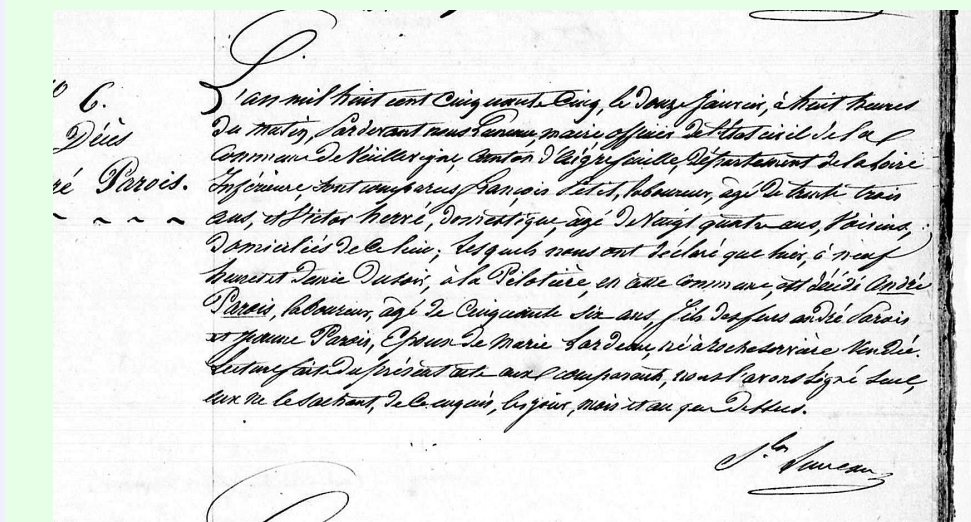 6.
Décès
ré Parois.
L'an mil huit cent cinquante cinq, le douze janvier, à huit heures
du matin, Pardevant nous maire officier de l'état civil de la
commune de Vieillevigne, canton d'aigrefeuille, Département de la loire
Inférieure, sont comparus françois Petit, laboureur, agé de trente trois
ans, et Victor herré, domestique, agé de Vingt quatre ans, Voisins,
domiciliés de ce lieu; lesquels nous ont déclaré que hier, à neuf
heures et demie du soir, à la Pilotière, en cette commune, est décédé André
Parois, laboureur, agé de Cinquante six ans, fils des feus andré Parois
et jeanne Parois, Epoux de Marie né à rocheservière Vendée.
Lecture faite du présent acte aux comparants, nous l'avons signé seul,
eux ne le sachant, de ce enquis, les jour, mois et an que dessus.